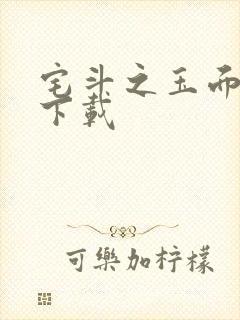 宅斗之玉而
下載
可樂加柠檬